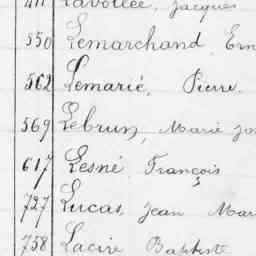 Lavollée, Jacques
550 Lemarchand, Ern
562 Lemarié, Pierre.
569 Lebrun, Marie Jos
617 Lesné, François
727 Lucas, Jean Mar
758 Lacire Baptiste